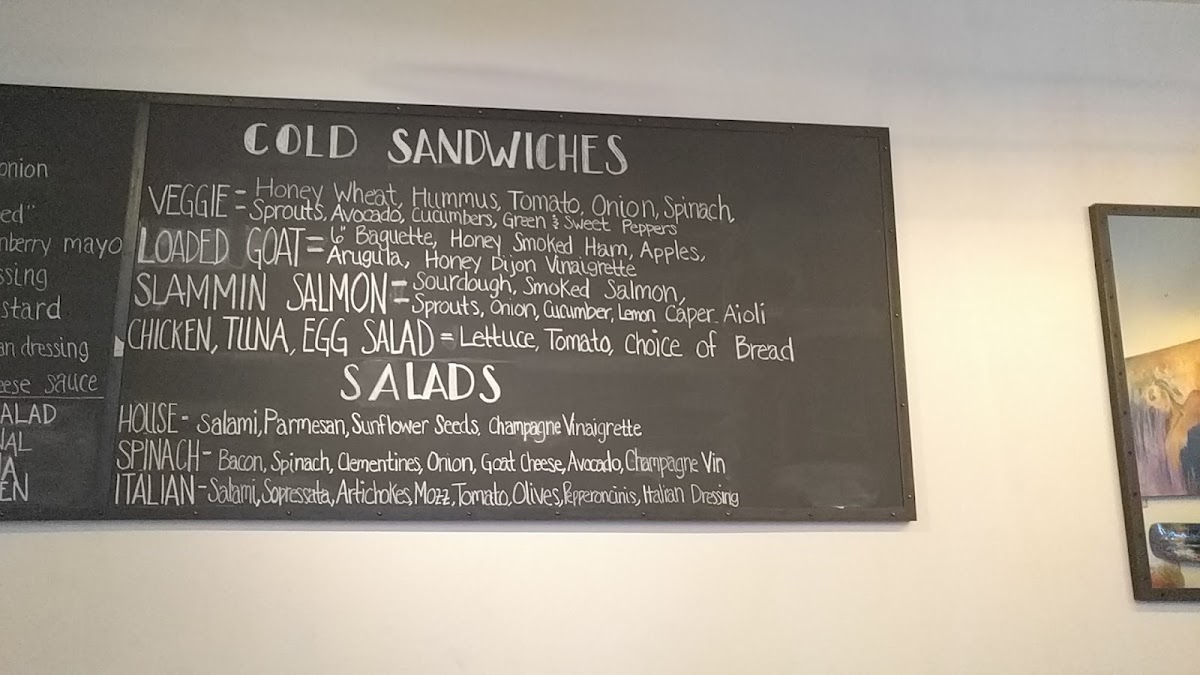 onion
ed"
nberry mayo
ssing
stard
an dressing
eese sauce
ALAD
NAL
A
EN
COLD SANDWICHES
VEGGIE = Honey Wheat, Hummus, Tomato, Onion, Spinach,
Sprouts, Avocado, Cucumbers, Green & Sweet Peppers
LOADED GOAT = 6" Baguette, Honey Smoked Ham, Apples,
Arugula, Honey Dijon Vinaigrette
SLAMMIN SALMON = Sourdough, Smoked Salmon,
Sprouts, Onion, Cucumber, Lemon Caper Aioli
CHICKEN, TUNA, EGG SALAD = Lettuce, Tomato, Choice of Bread
SALADS
HOUSE - Salami, Parmesan, Sunflower Seeds, Champagne Vinaigrette
SPINACH - Bacon, Spinach, Clementines, Onion, Goat Cheese, Avocado, Champagne Vin
ITALIAN - Salami, Sopressata, Artichokes, Mozz, Tomato, Olives, Pepperoncinis, Italian Dressing